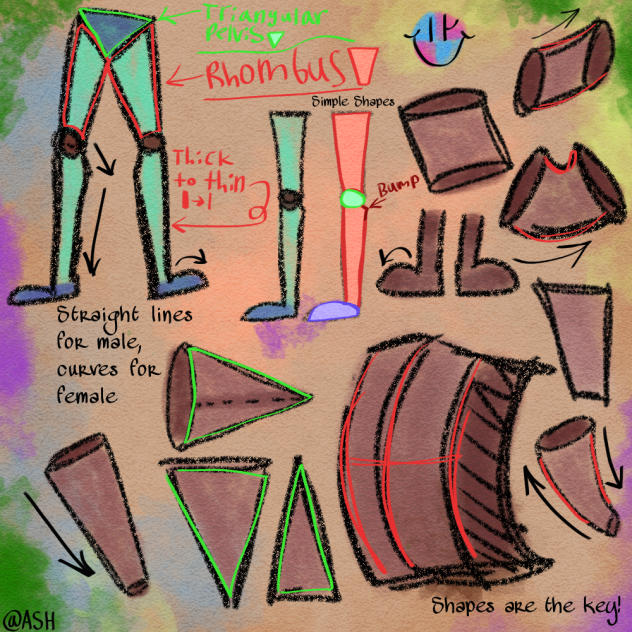 Triangular
Pelvis
Rhombus
Simple Shapes
Thick
to thin
Bump
Straight lines
for male,
curves for
female
@ASH
Shapes are the key!